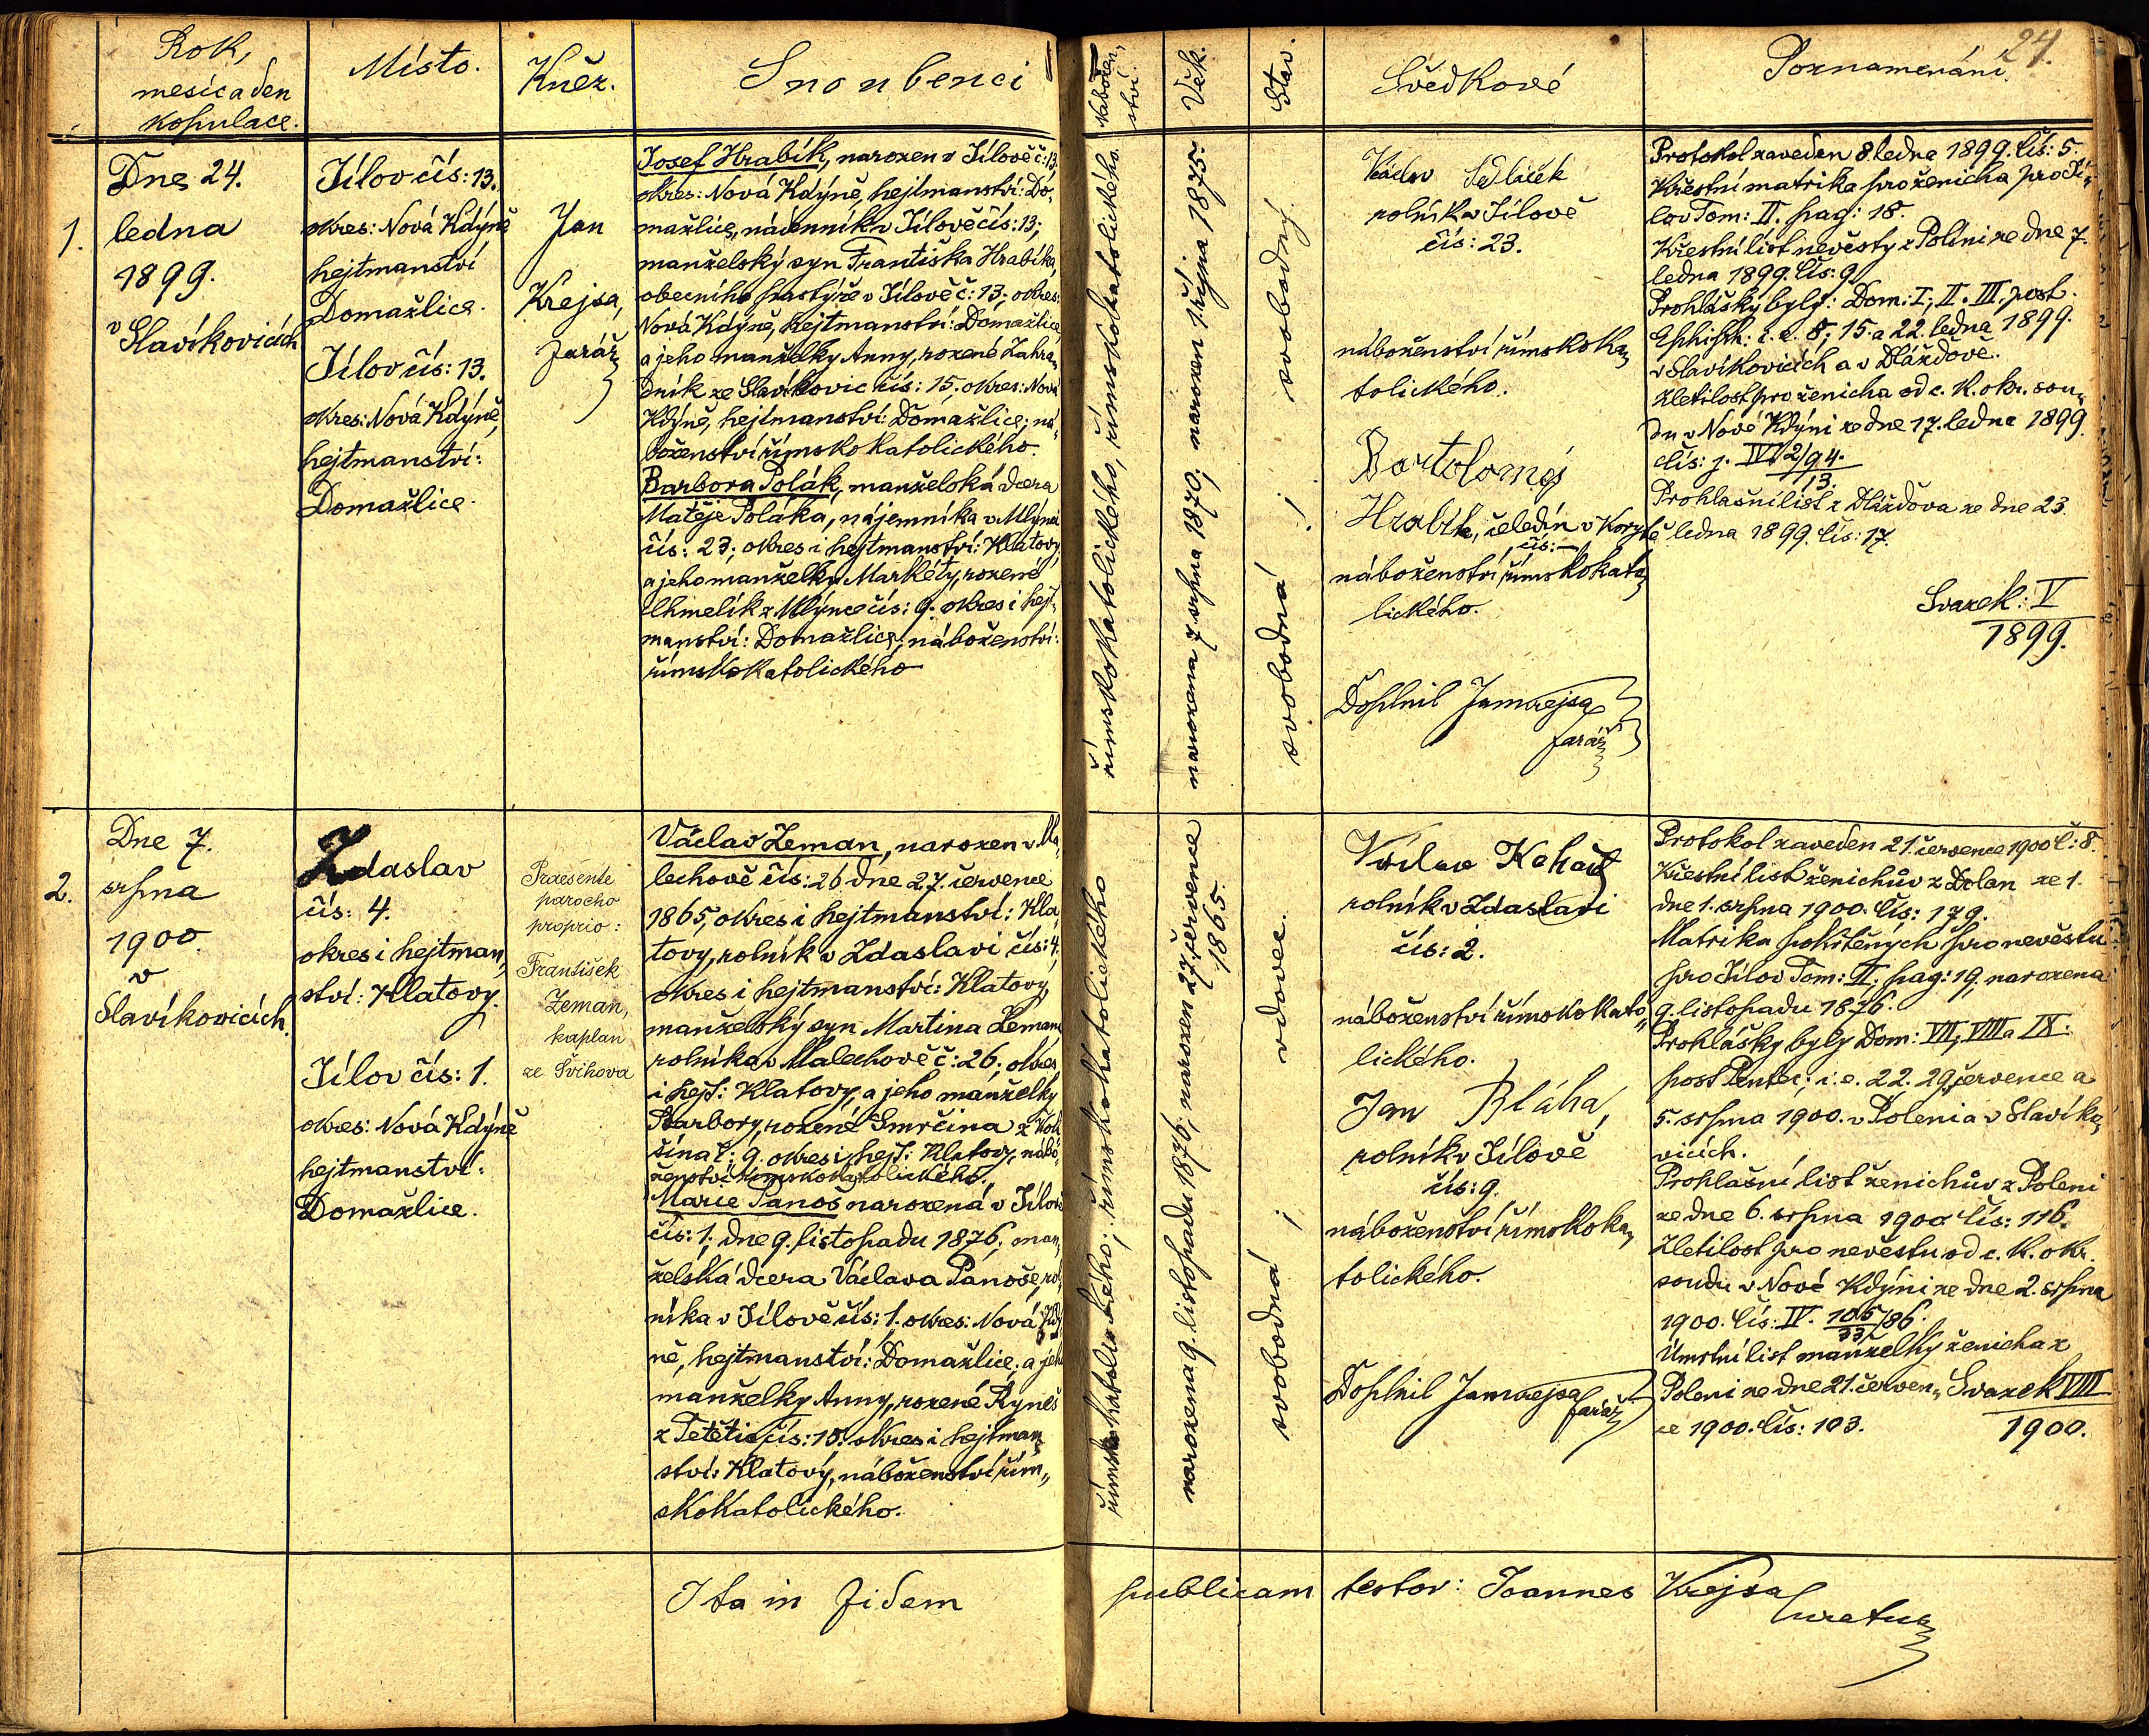 24.
Rok,
mesíc a den
kopulace.
Místo.
Kněz.
Snoubenci
Nábožen„
ství.
Věk.
Stav.
Svědkové
Poznamenání.
1.
Dne 24.
ledna
1899.
v Slavíkovicích
Jílov čís: 13.
okres: Nová Kdýně
hejtmanství
Domažlice.
Jílov čís: 13.
okres: Nová Kdýně,
hejtmanství:
Domažlice.
Jan
Krejsa,
farář
Josef Hrabík, narozen v Jílově č: 13,
okres: Nová Kdýně, hejtmanství: Do„
mažlice, nádenník v Jílově čís: 13;
manželský syn Františka Hrabíka,
obecního pastýře v Jílově č: 13; okres:
Nová Kdýně, hejtmanství: Domažlice
a jeho manželky Anny, rozené Zahra„
dník ze Slavíkovic čís: 15. okres: Nová
Kdýně, hejtmanství: Domažlice; ná„
boženství římskokatolického.
Barbora Polák, manželská dcera
Matěje Poláka, nájemníka v Mlýnci
čís: 23; okres i hejtmanství: Klatovy,
a jeho manželky Markéty, rozené
Chmelík z Mlýnce čís: 9. okres i hejt„
manství: Domažlice; náboženství:
římskokatolického
římskokatolického, římskokatolického.
narozena 7 srpna 1870; narozen 1. října 1875.
svobodná ; svobodný.
Václav Sedláček
rolník v Jílově
čís: 23.
náboženství římskoka„
tolického.
Bartoloměj
Hrabík, čeledín v Korytě
čís: —
náboženství římskokato„
lického.
Doplnil Jan Krejsa
farář
Protokol zaveden 8. ledna 1899. Čís: 5.
Křestní matrika pro ženicha pro Jí„
lov Tom: II. pag: 18.
Křestní list nevěsty z Poleni ze dne 7.
ledna 1899. Čís: 9
Prohlášky byly: Dom: I; II. III. post.
Ephiph: i. e. 8; 15. a 22. ledna 1899.
v Slavíkovicích a v Dlážďově.
Zletilost pro ženicha od c. k. okr. sou„
du v Nové Kdýni ze dne 17. ledna 1899
čís: j. IV. 2/94.
13.
Prohlašní list z Dlážďova ze dne 23.
ledna 1899. čís: 17.
Svazek: V
1899.
2.
Dne 7.
srpna
1900.
v
Slavíkovicích.
Zdaslav
čís: 4.
okres i hejtman„
ství: Klatovy.
Jílov čís: 1.
okres: Nová Kdýně
hejtmanství:
Domažlice.
Praesente
parocho
proprio:
František
Zeman,
kaplan
ze Švihova
Václav Zeman, narozen v Ma„
lechově čís: 26 dne 27. července
1865, okres i hejtmanství: Kla„
tovy, rolník v Zdaslavi čís: 4,
okres i hejtmanství: Klatovy,
manželský syn Martina Zemana
rolníka v Malechově č: 26; okres
i hejt: Klatovy, a jeho manželky
Barbory, rozené Smrčina z
č: 9. okres i hejt: Klatovy, nábo„
ženství římskokatolického.
Marie Panoš narozená v Jílově
čís: 1; dne 9. listopadu 1876; man„
želská dcera Václava Panoše, rol„
níka v Jílově čís: 1. okres: Nová Kdý„
ně, hejtmanství: Domažlice; a jeho
manželky Anny, rozené Ryneš
z Tetětic čís: 15. okres i hejtman„
ství: Klatovy, náboženství řím„
skokatolického.
římskokatolického; římskokatolického
narozena 9. listopadu 1876; narozen 27. července
1865.
svobodná ; vdovec.
Václav
rolník v Zdaslavi
čís: 2.
náboženství římskokato„
lického.
Jan Bláha,
rolník v Jílově
čís: 9.
náboženství římskoka„
tolického.
Doplnil Jan Krejsa
farář
Protokol zaveden 21. července 1900 č: 8.
Křestní list ženichův z Dolan ze 1.
dne 1. srpna 1900. Čís: 179.
Matrika pokřtěných pro nevěstu
pro Jílov Tom: II; pag: 19, narozena
9. listopadu 1876.
Prohlášky byly Dom: VII, VIII a IX.
post Pentec; i. e. 22. 29. července a
5. srpna 1900. v Poleni a v Slavíko„
vicích.
Prohlašní list ženichův z Poleni
ze dne 6. srpna 1900 čís: 116.
Zletilost pro nevěstu od c. k. okr.
soudu v Nové Kdýni ze dne 2. srpna
1900. Čís: IV. 105/86.
33
Úmrtní list manželky ženicha z
Poleni ze dne 21. červen„
ce 1900. Čís: 103.
Svazek VIII
1900.
Ita in fidem publicam testor: Joannes Krejsa
curatus